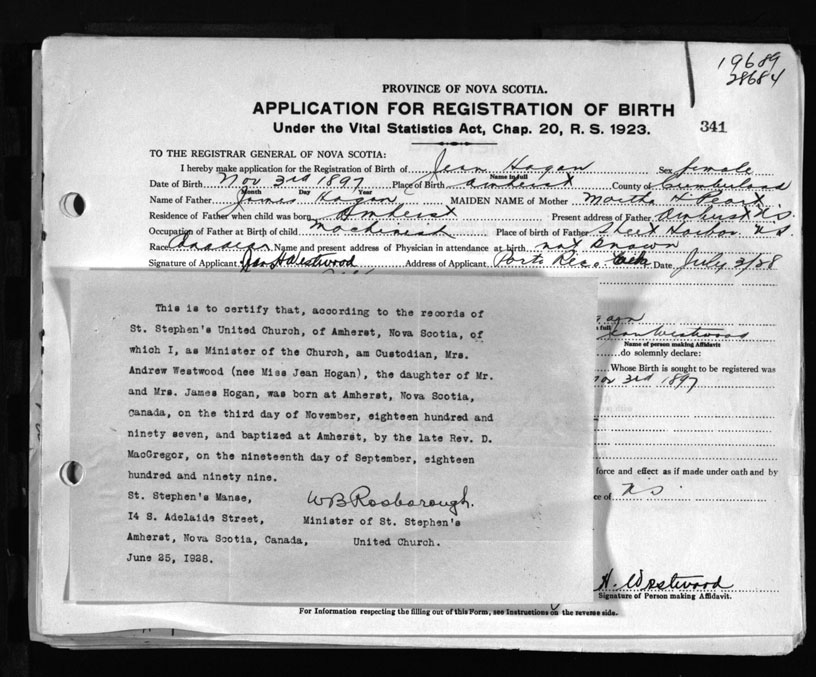 19689
28684
PROVINCE OF NOVA SCOTIA.
APPLICATION FOR REGISTRATION OF BIRTH
Under the Vital Statistics Act, Chap. 20, R. S. 1923.
341
TO THE REGISTRAR GENERAL OF NOVA SCOTIA:
I hereby make application for the Registration of Birth of Jean Hogan Sex female
Name in full
Date of Birth Nov 3rd 1897 Place of Birth Amherst County of Cumberland
Month Day Year
Name of Father James Hogan MAIDEN NAME of Mother Martha H
Residence of Father when child was born Amherst Present address of Father Amherst N.S.
Occupation of Father at Birth of child Machinist Place of birth of Father Sheet Harbor N S
Race Canadian Name and present address of Physician in attendance at birth not known
Signature of Applicant Jean H Westwood Address of Applicant Porto Rico Date July 2/28
This is to certify that, according to the records of
St. Stephen's United Church, of Amherst, Nova Scotia, of
which I, as Minister of the Church, am Custodian, Mrs.
Andrew Westwood (nee Miss Jean Hogan), the daughter of Mr.
and Mrs. James Hogan, was born at Amherst, Nova Scotia,
Canada, on the third day of November, eighteen hundred and
ninety seven, and baptized at Amherst, by the late Rev. D.
MacGregor, on the nineteenth day of September, eighteen
hundred and ninety nine.
St. Stephen's Manse, W B Rosborough.
14 S. Adelaide Street, Minister of St. Stephen's
Amherst, Nova Scotia, Canada, United Church.
June 25, 1928.
full
Westwood
Name of person making Affidavit
do solemnly declare:
Whose Birth is sought to be registered was
3rd 1897
force and effect as if made under oath and by
ce of N S
H. Westwood
Signature of Person making Affidavit.
For Information respecting the filling out of this Form, see Instructions on the reverse side.